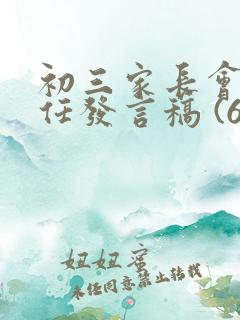 初三家長會
任發言稿 (6
妞妞蜜
未任同意禁止結載